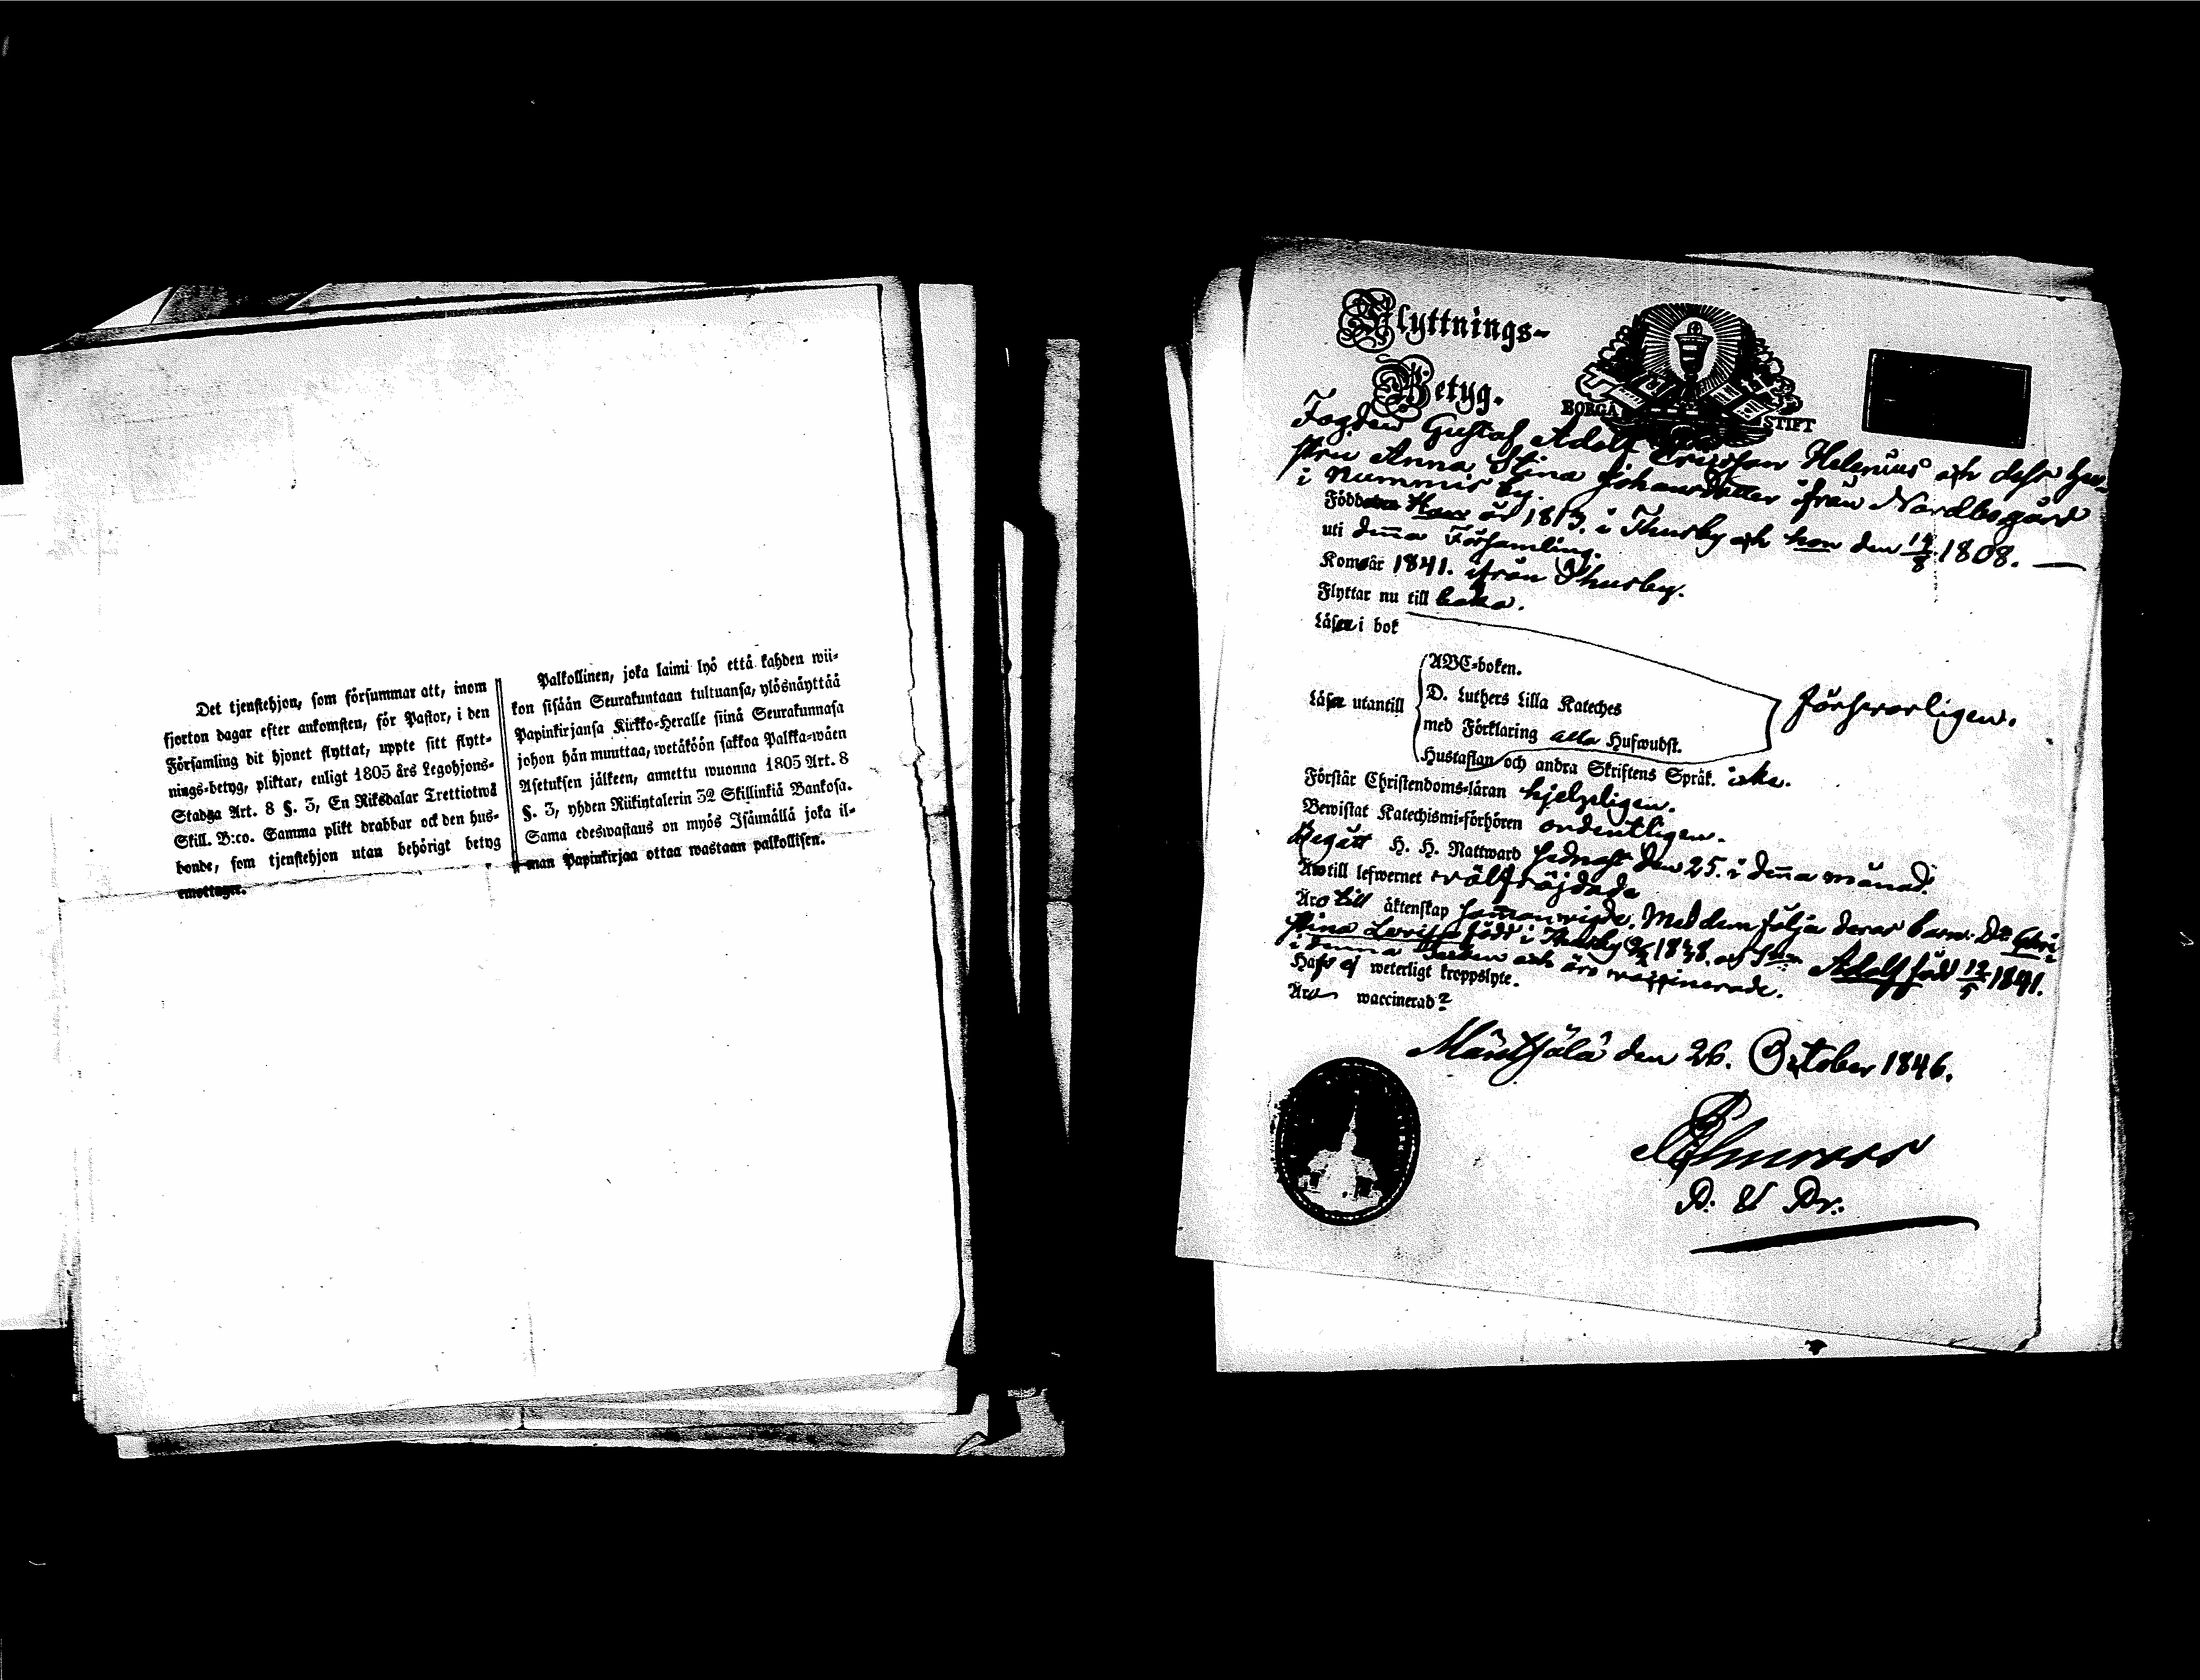 Det tjenstehjon, som försummar att, inom
fjorton dagar efter ankomsten, för Pastor, i den
Församling dit hjonet flyttat, uppte sitt flytt-
nings-betyg, pliktar, enligt 1805 års Legohjons-
Stadga Art. 8 §. 3, En Riksdalar Trettiotwå
Skill. B:co. Samma plikt drabbar ock den hus-
bonde, som tjenstehjon utan behörigt betyg
emottager.
Palkollinen, joka laimi lyö että kahden wii-
kon sisään Seurakuntaan tultuansa, ylösnäyttää
Papinkirjansa Kirkko-Heralle siinä Seurakunnasa
johon hän muuttaa, wetäköön sakkoa Palkka-wäen
Asetuksen jälkeen, annettu wuonna 1805 Art. 8
§. 3, yhden Riikintalerin 32 Skillinkiä Bankosa.
Sama edeswastaus on myös Isäunällä joka il-
man Papinkirjaa ottaa wastaan palkollisen.
Flyttnings-
Betyg.
BORGÅ STIFT
Gustaf Adolf Helenius och dess hu-
stru Anna Stina Johansdotter ifrån Nordbogård
i Nummis by.
Född Han år 1813. i Thusby och hon den 19/8 1808. —
uti denna Församling.
Kom år 1841. ifrån Thusby.
Flyttar nu till baka.
Läser i bok
ABC-boken.
Läser utantill D. Luthers Lilla Kateches
med Förklaring alla Hufwudst. försvarligen.
Hustaflan och andra Skriftens Språk. icke.
Förstår Christendoms-läran hjelpligen.
Bewistat Katechismi-förhören ordentligen.
Begått H. H. Nattward sednast den 25. i denna månad.
Äro till lefwernet välfräjdade
Äro till äktenskap sammanvigde. Med dem följa deras barn: Gust.
född i Thusby 1838. Adolf född 19/5 1841.
i denna Socken och äro waccinerade.
Hafva ej weterligt kroppslyte.
Äro waccinerad?
Mäntsälä den 26. October 1846.